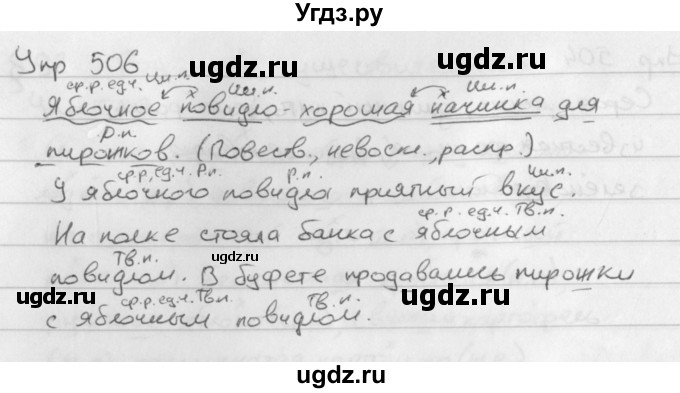 Угдз.ру
Упр 506
ср.р.ед.ч. Им.п. Им.п. Им.п.
Яблочное повидло хорошая начинка для
Р.п.
пирожков. (Повеств., невоскл., распр.)
ср.р, ед.ч. Р.п. Р.п. Им.п.
У яблочного повидла приятный вкус.
ср.р. ед.ч. Тв.п.
На полке стояла банка с яблочным
Тв.п. ugdz.ru
повидлом. В буфете продавались пирожки
ugdz.ru ugdz.ru
ср.р.ед.ч.Тв.п. Тв.п.
с яблочным повидлом.
ugdz.ru